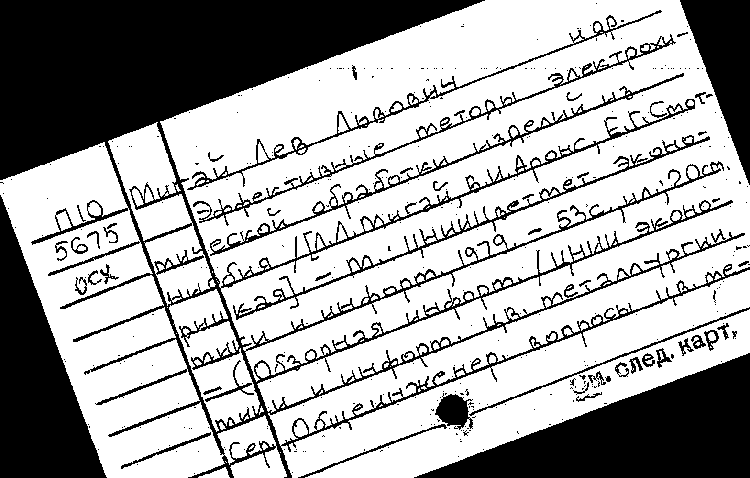 П10
5675
осх
Мигай, Лев Львович и др.
Эффективные методы электрохи-
мической обработки изделий из
ниобия / [Л.Л. Мигай, В.И. Аронс, Е.Г. Смот-
рицкая]. – М.: ЦНИИЦветмет эконо-
мики и информ., 1979. – 53с., ил.; 20см.
– (Обзорная информ. / ЦНИИ эконо-
мики и информ. цв. металлургии.
Сер. „Общеинженер. вопросы цв. ме-
См. след. карт.